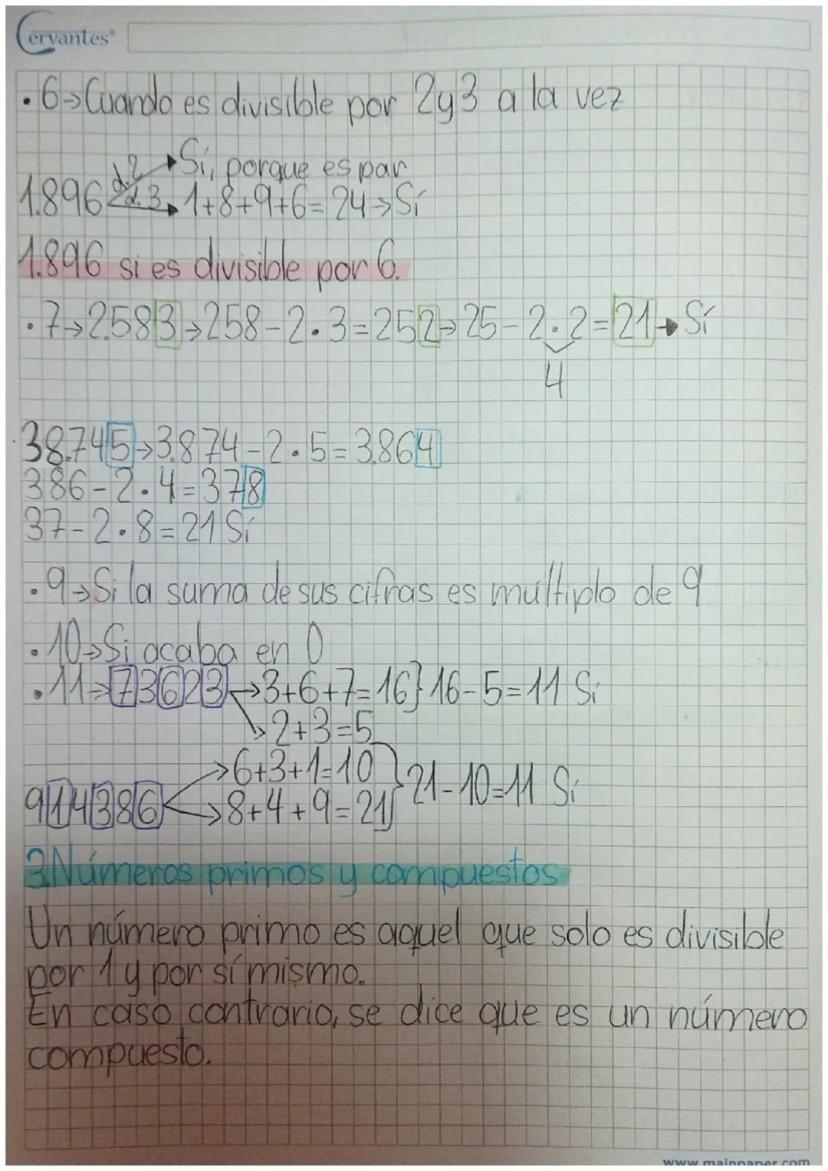 Cervantes®
· 6→Cuando es divisible por 2y3 a la vez
d.2 →Sí, porque es par
1.896 d.3 → 1+8+9+6=24→Sí
1.896 si es divisible por 6.
· 7→2.583→258-2·3=252→25-2·2=21→Sí
4
38.745→3.874-2·5=3.864
386-2·4=378
37-2·8=21 Sí
· 9→Si la suma de sus cifras es múltiplo de 9
· 10→Si acaba en 0
· 11→73623→3+6+7=16}16-5=11 Sí
→2+3=5
→6+3+1=10
914386 →8+4+9=21}21-10=11 Sí
3.Números primos y compuestos
Un número primo es aquel que solo es divisible
por 1 y por sí mismo.
En caso contrario, se dice que es un número
compuesto.
www.mainpaper.com